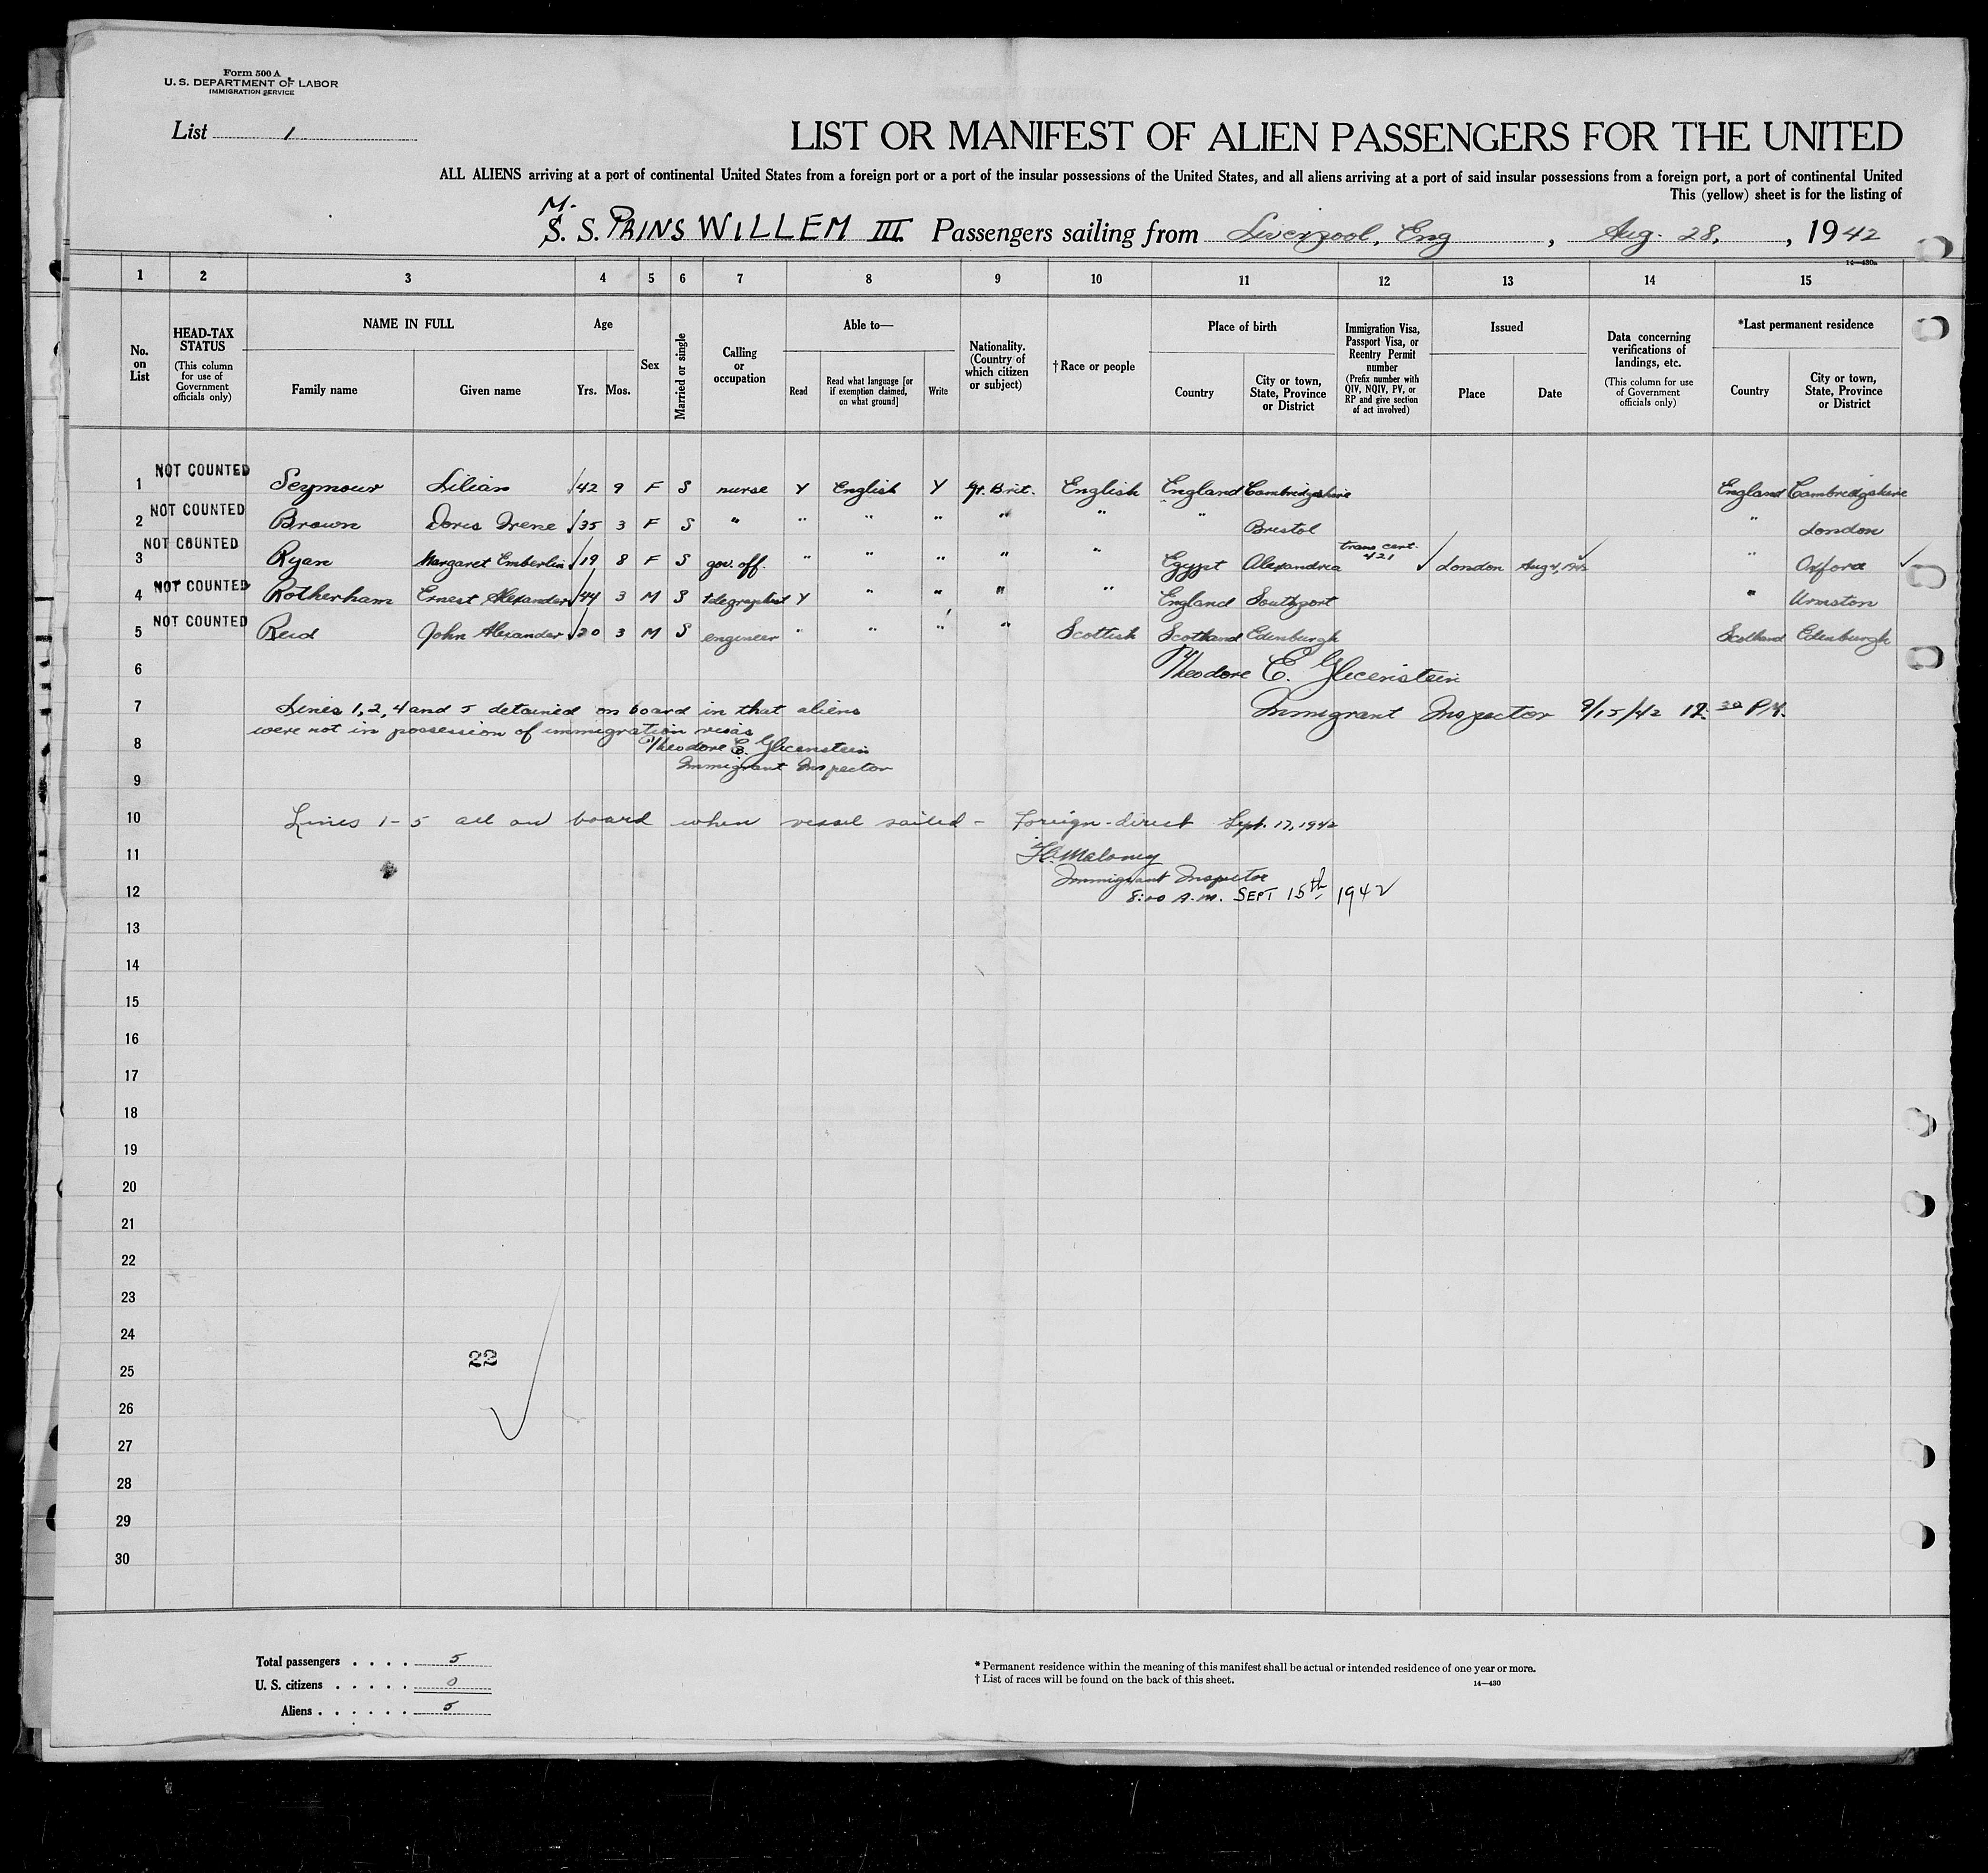 Form 500 A
U. S. DEPARTMENT OF LABOR
IMMIGRATION SERVICE
List 1
LIST OR MANIFEST OF ALIEN PASSENGERS FOR THE UNITED
ALL ALIENS arriving at a port of continental United States from a foreign port or a port of the insular possessions of the United States, and all aliens arriving at a port of said insular possessions from a foreign port, a port of continental United
This (yellow) sheet is for the listing of
M.
S. S. PRINS WILLEM III Passengers sailing from Liverpool, Eng , Aug. 28, , 1942
14—430a
1 2 3 4 5 6 7 8 9 10 11 12 13 14 15
No. on List
HEAD-TAX STATUS
(This column for use of Government officials only)
NAME IN FULL
Family name Given name
Age
Yrs. Mos.
Sex
Married or single
Calling or occupation
Able to—
Read
Read what language [or if exemption claimed, on what ground]
Write
Nationality. (Country of which citizen or subject)
†Race or people
Place of birth
Country
City or town, State, Province or District
Immigration Visa, Passport Visa, or Reentry Permit number
(Prefix number with QIV, NQIV, PV, or RP and give section of act involved)
Issued
Place Date
Data concerning verifications of landings, etc.
(This column for use of Government officials only)
*Last permanent residence
Country
City or town, State, Province or District
1 NOT COUNTED Seymour Lilian 42 9 F S nurse Y English Y Gr. Brit. English England Cambridgshire England Cambridgshire
2 NOT COUNTED Brown Doris Irene 35 3 F S " " " " " " " Bristol " London
3 NOT COUNTED Ryan Margaret Emberlin 19 8 F S gov. off. " " " " " Egypt Alexandria trans cert. 421 London Aug 4, 1942 " Oxford
4 NOT COUNTED Rotherham Ernest Alexander 44 3 M S telegraphist Y " " " " England Southport " Urmston
5 NOT COUNTED Reid John Alexander 20 3 M S engineer " " " " Scottish Scotland Edinburgh Scotland Edinburgh
6 Theodore E. Glicenstein
7 Lines 1, 2, 4 and 5 detained on board in that aliens Immigrant Inspector 9/15/42 12 30 P.M.
were not in possession of immigration visas
8 Theodore E. Glicenstein
Immigrant Inspector
9
10 Lines 1-5 all on board when vessel sailed - Foreign-direct Sept. 17, 1942
11 Maloney
Immigrant Inspector
12 8:00 A.M. SEPT 15th 1942
13
14
15
16
17
18
19
20
21
22
23
24
22
25
26
27
28
29
30
Total passengers . . . . 5
U. S. citizens . . . . . 0
Aliens . . . . . . 5
* Permanent residence within the meaning of this manifest shall be actual or intended residence of one year or more.
† List of races will be found on the back of this sheet.
14—430